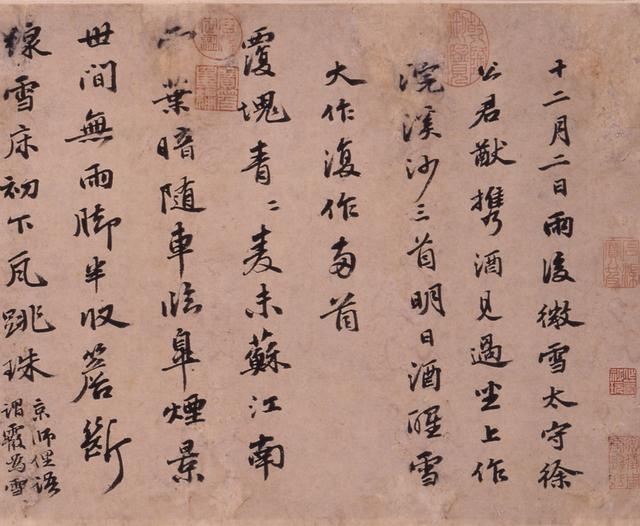 十二月二日雨後微雪太守徐
公君猷攜酒見過坐上作
浣溪沙三首明日酒醒雪
大作復作兩首
覆塊青〻麦未蘇江南
一葉暗随車臨臯煙景
世間無雨脚半收簷断
線雪床初下瓦跳珠
京師俚语
謂霰為雪